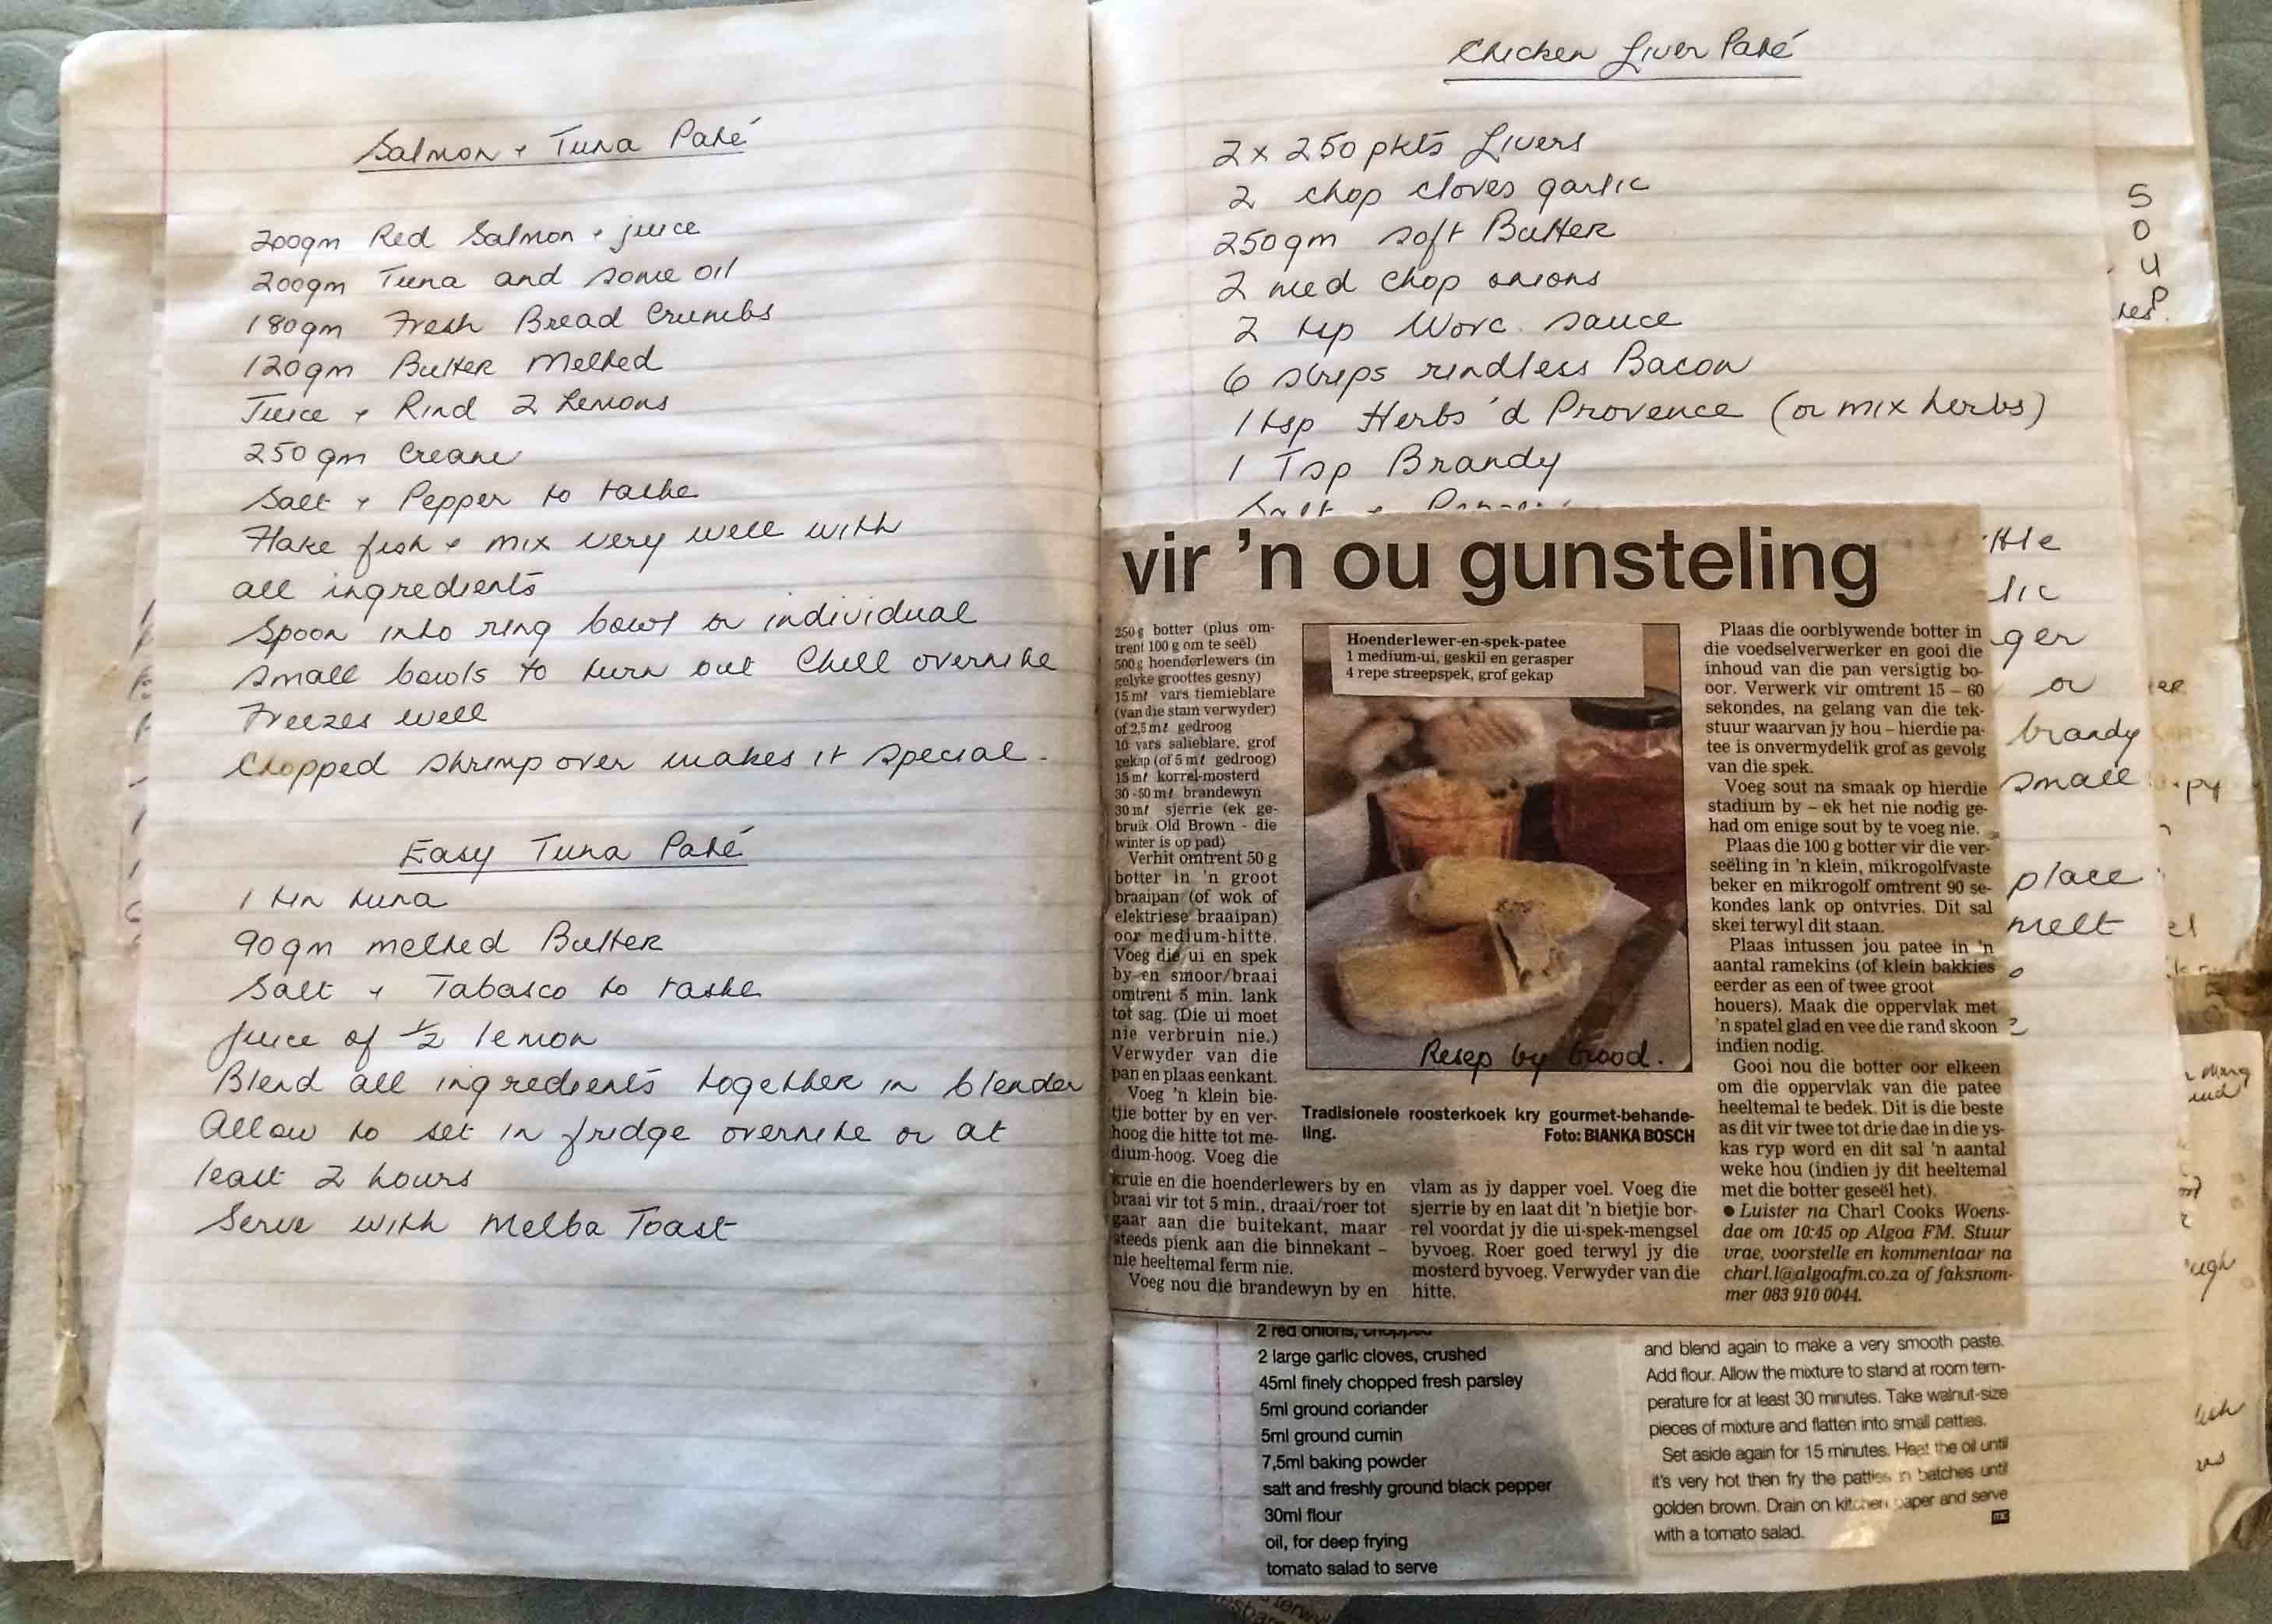 Salmon + Tuna Paté
200gm Red Salmon + juice
200gm Tuna and some oil
180gm Fresh Bread Crumbs
120gm Butter Melted
Juice + Rind 2 Lemons
250 gm Cream
Salt + Pepper to taste
Flake fish + mix very well with
all ingredients
Spoon into ring bowl or individual
small bowls to turn out Chill overnite
Freezes well
Chopped shrimp over makes it special.
Easy Tuna Paté
1 tin tuna
90gm melted Butter
Salt + Tabasco to taste
juice of 1/2 lemon
Blend all ingredients together in blender
Allow to set in fridge overnite or at
least 2 hours
Serve with Melba Toast
Chicken Liver Paté
2 x 250 pkts Livers
2 chop cloves garlic
250gm soft Butter
2 med chop onions
2 tsp Worc. sauce
6 strips rindless Bacon
1 tsp Herbs 'd Provence (or mix herbs)
1 Tsp Brandy
Salt + Pepper
or
brandy
small
place
melt
S
O
U
P
vir 'n ou gunsteling
250 g botter (plus om-
trent 100 g om te seël)
500 g hoenderlewers (in
gelyke groottes gesny)
15 mℓ vars tiemieblare
(van die stam verwyder)
of 2,5 mℓ gedroog
10 vars salieblare, grof
gekap (of 5 mℓ gedroog)
15 mℓ korrel-mosterd
30 -50 mℓ brandewyn
30 mℓ sjerrie (ek ge-
bruik Old Brown - die
winter is op pad)
Verhit omtrent 50 g
botter in 'n groot
braaipan (of wok of
elektriese braaipan)
oor medium-hitte.
Voeg die ui en spek
by en smoor/braai
omtrent 5 min. lank
tot sag. (Die ui moet
nie verbruin nie.)
Verwyder van die
pan en plaas eenkant.
Voeg 'n klein bie-
tjie botter by en ver-
hoog die hitte tot me-
dium-hoog. Voeg die
kruie en die hoenderlewers by en
braai vir tot 5 min., draai/roer tot
gaar aan die buitekant, maar
steeds pienk aan die binnekant –
nie heeltemal ferm nie.
Voeg nou die brandewyn by en
Hoenderlewer-en-spek-patee
1 medium-ui, geskil en gerasper
4 repe streepspek, grof gekap
Resep by brood.
Tradisionele roosterkoek kry gourmet-behande-
ling.
Foto: BIANKA BOSCH
vlam as jy dapper voel. Voeg die
sjerrie by en laat dit 'n bietjie bor-
rel voordat jy die ui-spek-mengsel
byvoeg. Roer goed terwyl jy die
mosterd byvoeg. Verwyder van die
hitte.
Plaas die oorblywende botter in
die voedselverwerker en gooi die
inhoud van die pan versigtig bo-
oor. Verwerk vir omtrent 15 – 60
sekondes, na gelang van die tek-
stuur waarvan jy hou – hierdie pa-
tee is onvermydelik grof as gevolg
van die spek.
Voeg sout na smaak op hierdie
stadium by – ek het nie nodig ge-
had om enige sout by te voeg nie.
Plaas die 100 g botter vir die ver-
seëling in 'n klein, mikrogolfvaste
beker en mikrogolf omtrent 90 se-
kondes lank op ontvries. Dit sal
skei terwyl dit staan.
Plaas intussen jou patee in 'n
aantal ramekins (of klein bakkies
eerder as een of twee groot
houers). Maak die oppervlak met
'n spatel glad en vee die rand skoon
indien nodig.
Gooi nou die botter oor elkeen
om die oppervlak van die patee
heeltemal te bedek. Dit is die beste
as dit vir twee tot drie dae in die ys-
kas ryp word en dit sal 'n aantal
weke hou (indien jy dit heeltemal
met die botter geseël het).
● Luister na Charl Cooks Woens-
dae om 10:45 op Algoa FM. Stuur
vrae, voorstelle en kommentaar na
charl.l@algoafm.co.za of faksnom-
mer 083 910 0044.
2 red onions, chopped
2 large garlic cloves, crushed
45ml finely chopped fresh parsley
5ml ground coriander
5ml ground cumin
7,5ml baking powder
salt and freshly ground black pepper
30ml flour
oil, for deep frying
tomato salad to serve
and blend again to make a very smooth paste.
Add flour. Allow the mixture to stand at room tem-
perature for at least 30 minutes. Take walnut-size
pieces of mixture and flatten into small patties.
Set aside again for 15 minutes. Heat the oil until
it's very hot then fry the patties in batches until
golden brown. Drain on kitchen paper and serve
with a tomato salad.